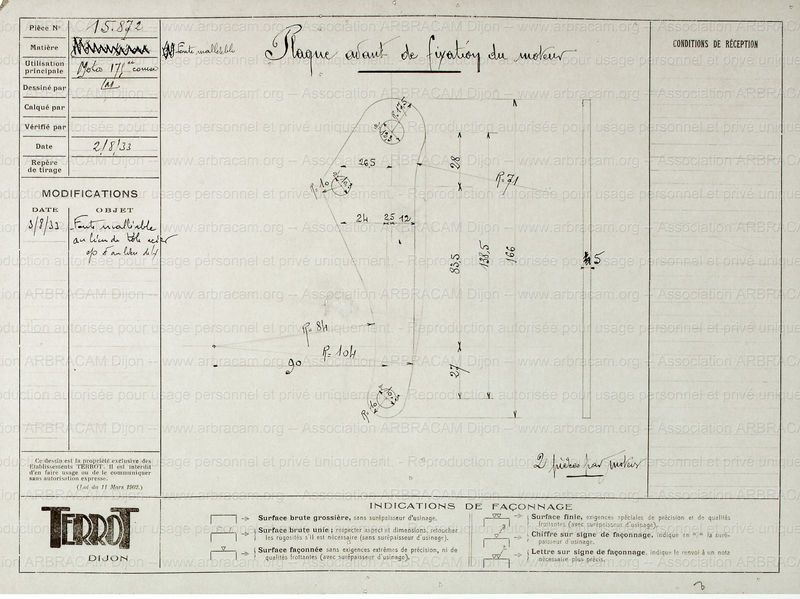 Pièce N° 15.872
Matière Fonte malléable
Utilisation
principale Moto 175 cc
Dessiné par
Calqué par
Vérifié par
Date 2/8/33
Repère
de tirage
MODIFICATIONS
DATE OBJET
3/8/33 Fonte malléable
au lieu de tôle acier
ep 5 au lieu de 4
Ce dessin est la propriété exclusive des
Etablissements TERROT. Il est interdit
d'en faire usage ou de le communiquer
sans autorisation expresse.
(Loi du 11 Mars 1902.)
Plaque avant de fixation du moteur
CONDITIONS DE RÉCEPTION
R=12,5
26,5
28
R=10
R=71
24 25 12
83,5
138,5
166
5
R=84
R=104
90
27
R=10
2 pièces par moteur
TERROT
DIJON
INDICATIONS DE FAÇONNAGE
Surface brute grossière, sans surépaisseur d'usinage.
Surface brute unie : respecter aspect et dimensions, retoucher
les rugosités s'il est nécessaire (sans surépaisseur d'usinage).
Surface façonnée sans exigences extrêmes de précision, ni de
qualités frottantes (avec surépaisseur d'usinage).
Surface finie, exigences spéciales de précision et de qualités
frottantes (avec surépaisseur d'usinage).
Chiffre sur signe de façonnage, indique en m/m la surépaisseur
d'usinage.
Lettre sur signe de façonnage, indique le renvoi à un nota
nécessaire plus précis.
www.arbracam.org -- Association ARBRACAM Dijon -- www.arbracam.org -- Association ARBRACAM Dijon
Reproduction autorisée pour usage personnel et privé uniquement